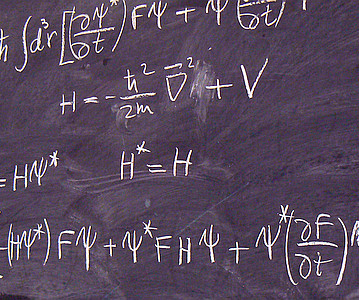 ħ∫d³r[(∂Ψ*/∂t)FΨ + Ψ*(∂F/∂t)
H = -ħ²/2m ∇⃗² + V
= HΨ* H* = H
(HΨ*)FΨ + Ψ*FHΨ + Ψ*(∂F/∂t)